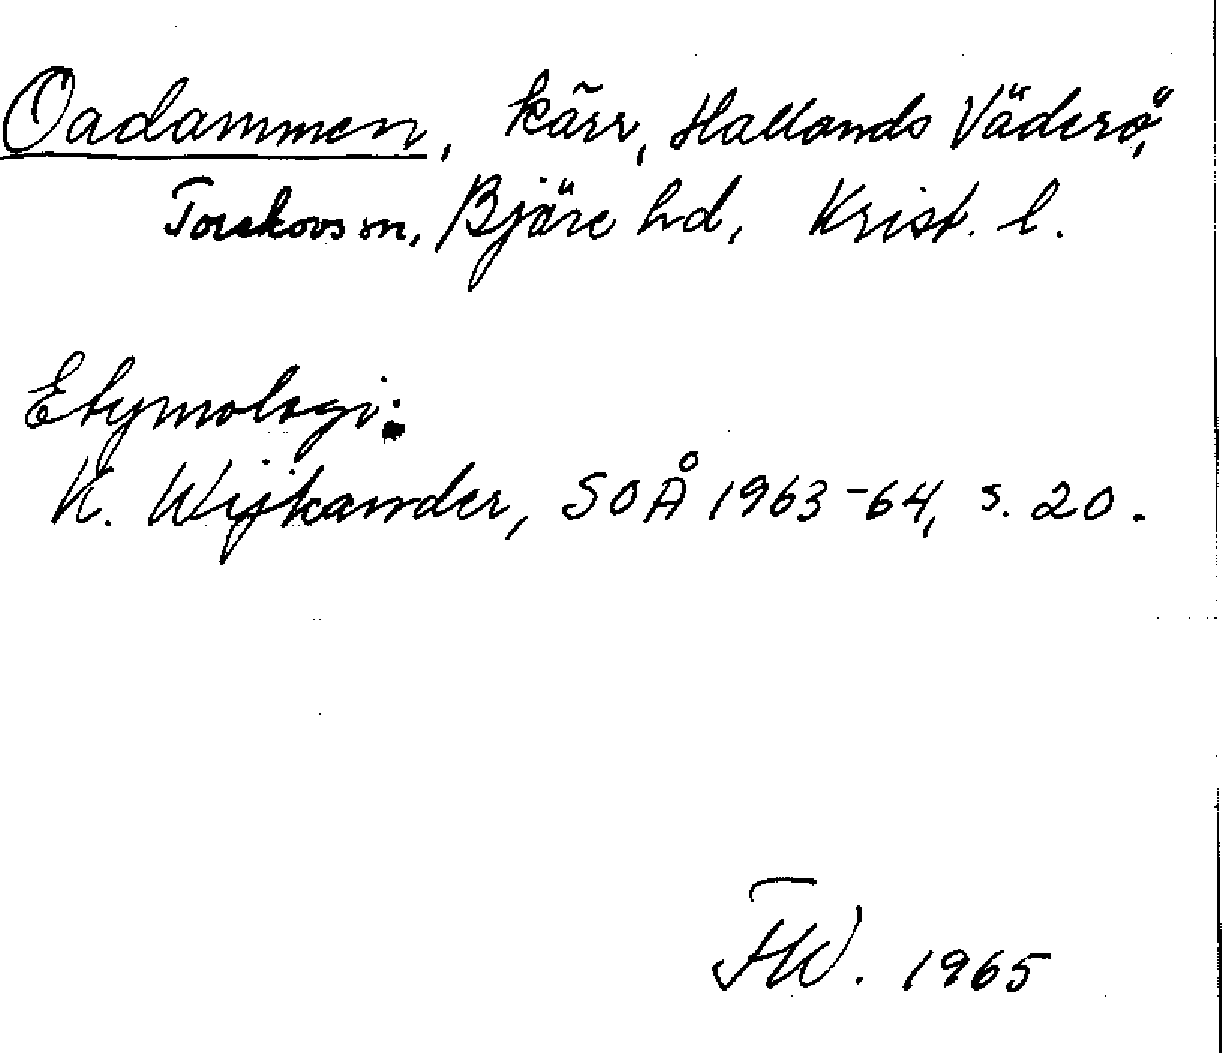 Oadammen, kärr, Hallands Väderö,
Torekovs sn, Bjäre hd, Krist. l.
Etymologi:
K. Wijkander, SOÅ 1963-64, s. 20.
FW. 1965